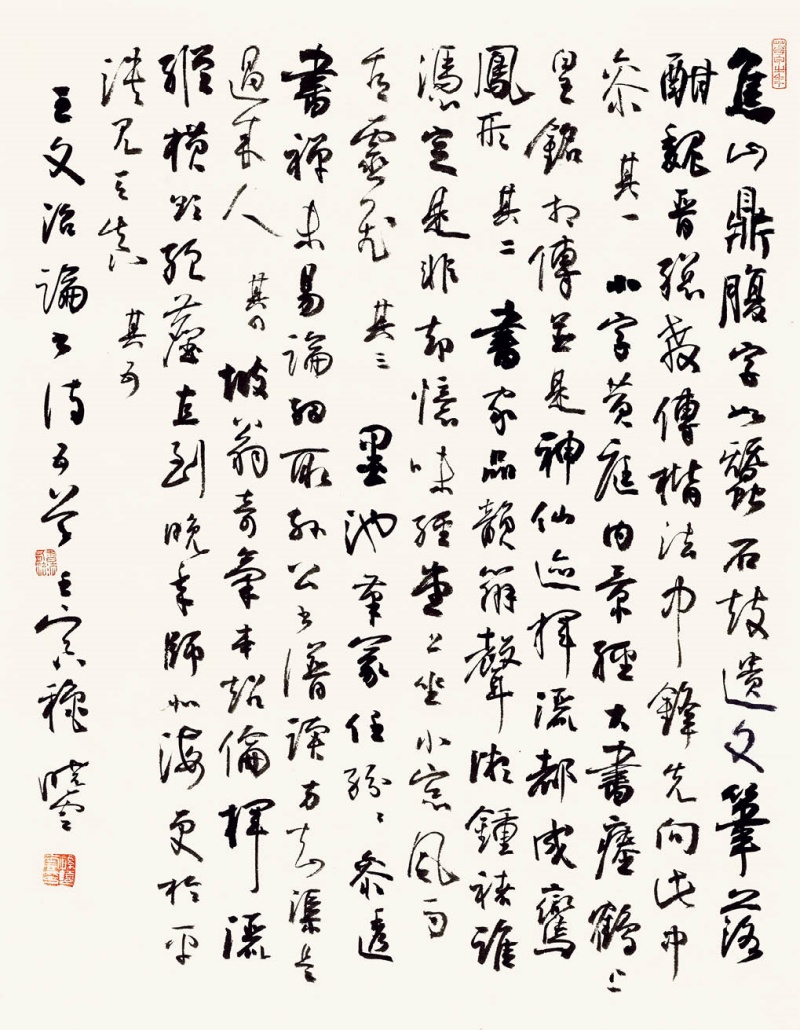 焦山鼎腹字如蠶石鼓遺文筆落
酣魏晉總教傳楷法中鋒先向此中
參 其一 小字黄庭内景經大書瘞鶴上
皇銘相傳並是神仙迹揮灑都成鸞
鳳形 其二 書家品韻辨聲鍾褚誰
憑定是非却憶味經堂上坐小窗風雨
靈飛 其三 墨池筆冢任紛〻參透
書禪未易論細取孫公書譜讀方知渠是
過來人 其四 坡翁奇氣本超倫揮灑
縱橫欲絶塵直到晚年師北海更於平
淡見天真 其五
王文治論書詩五首 壬寅穐 曉雲